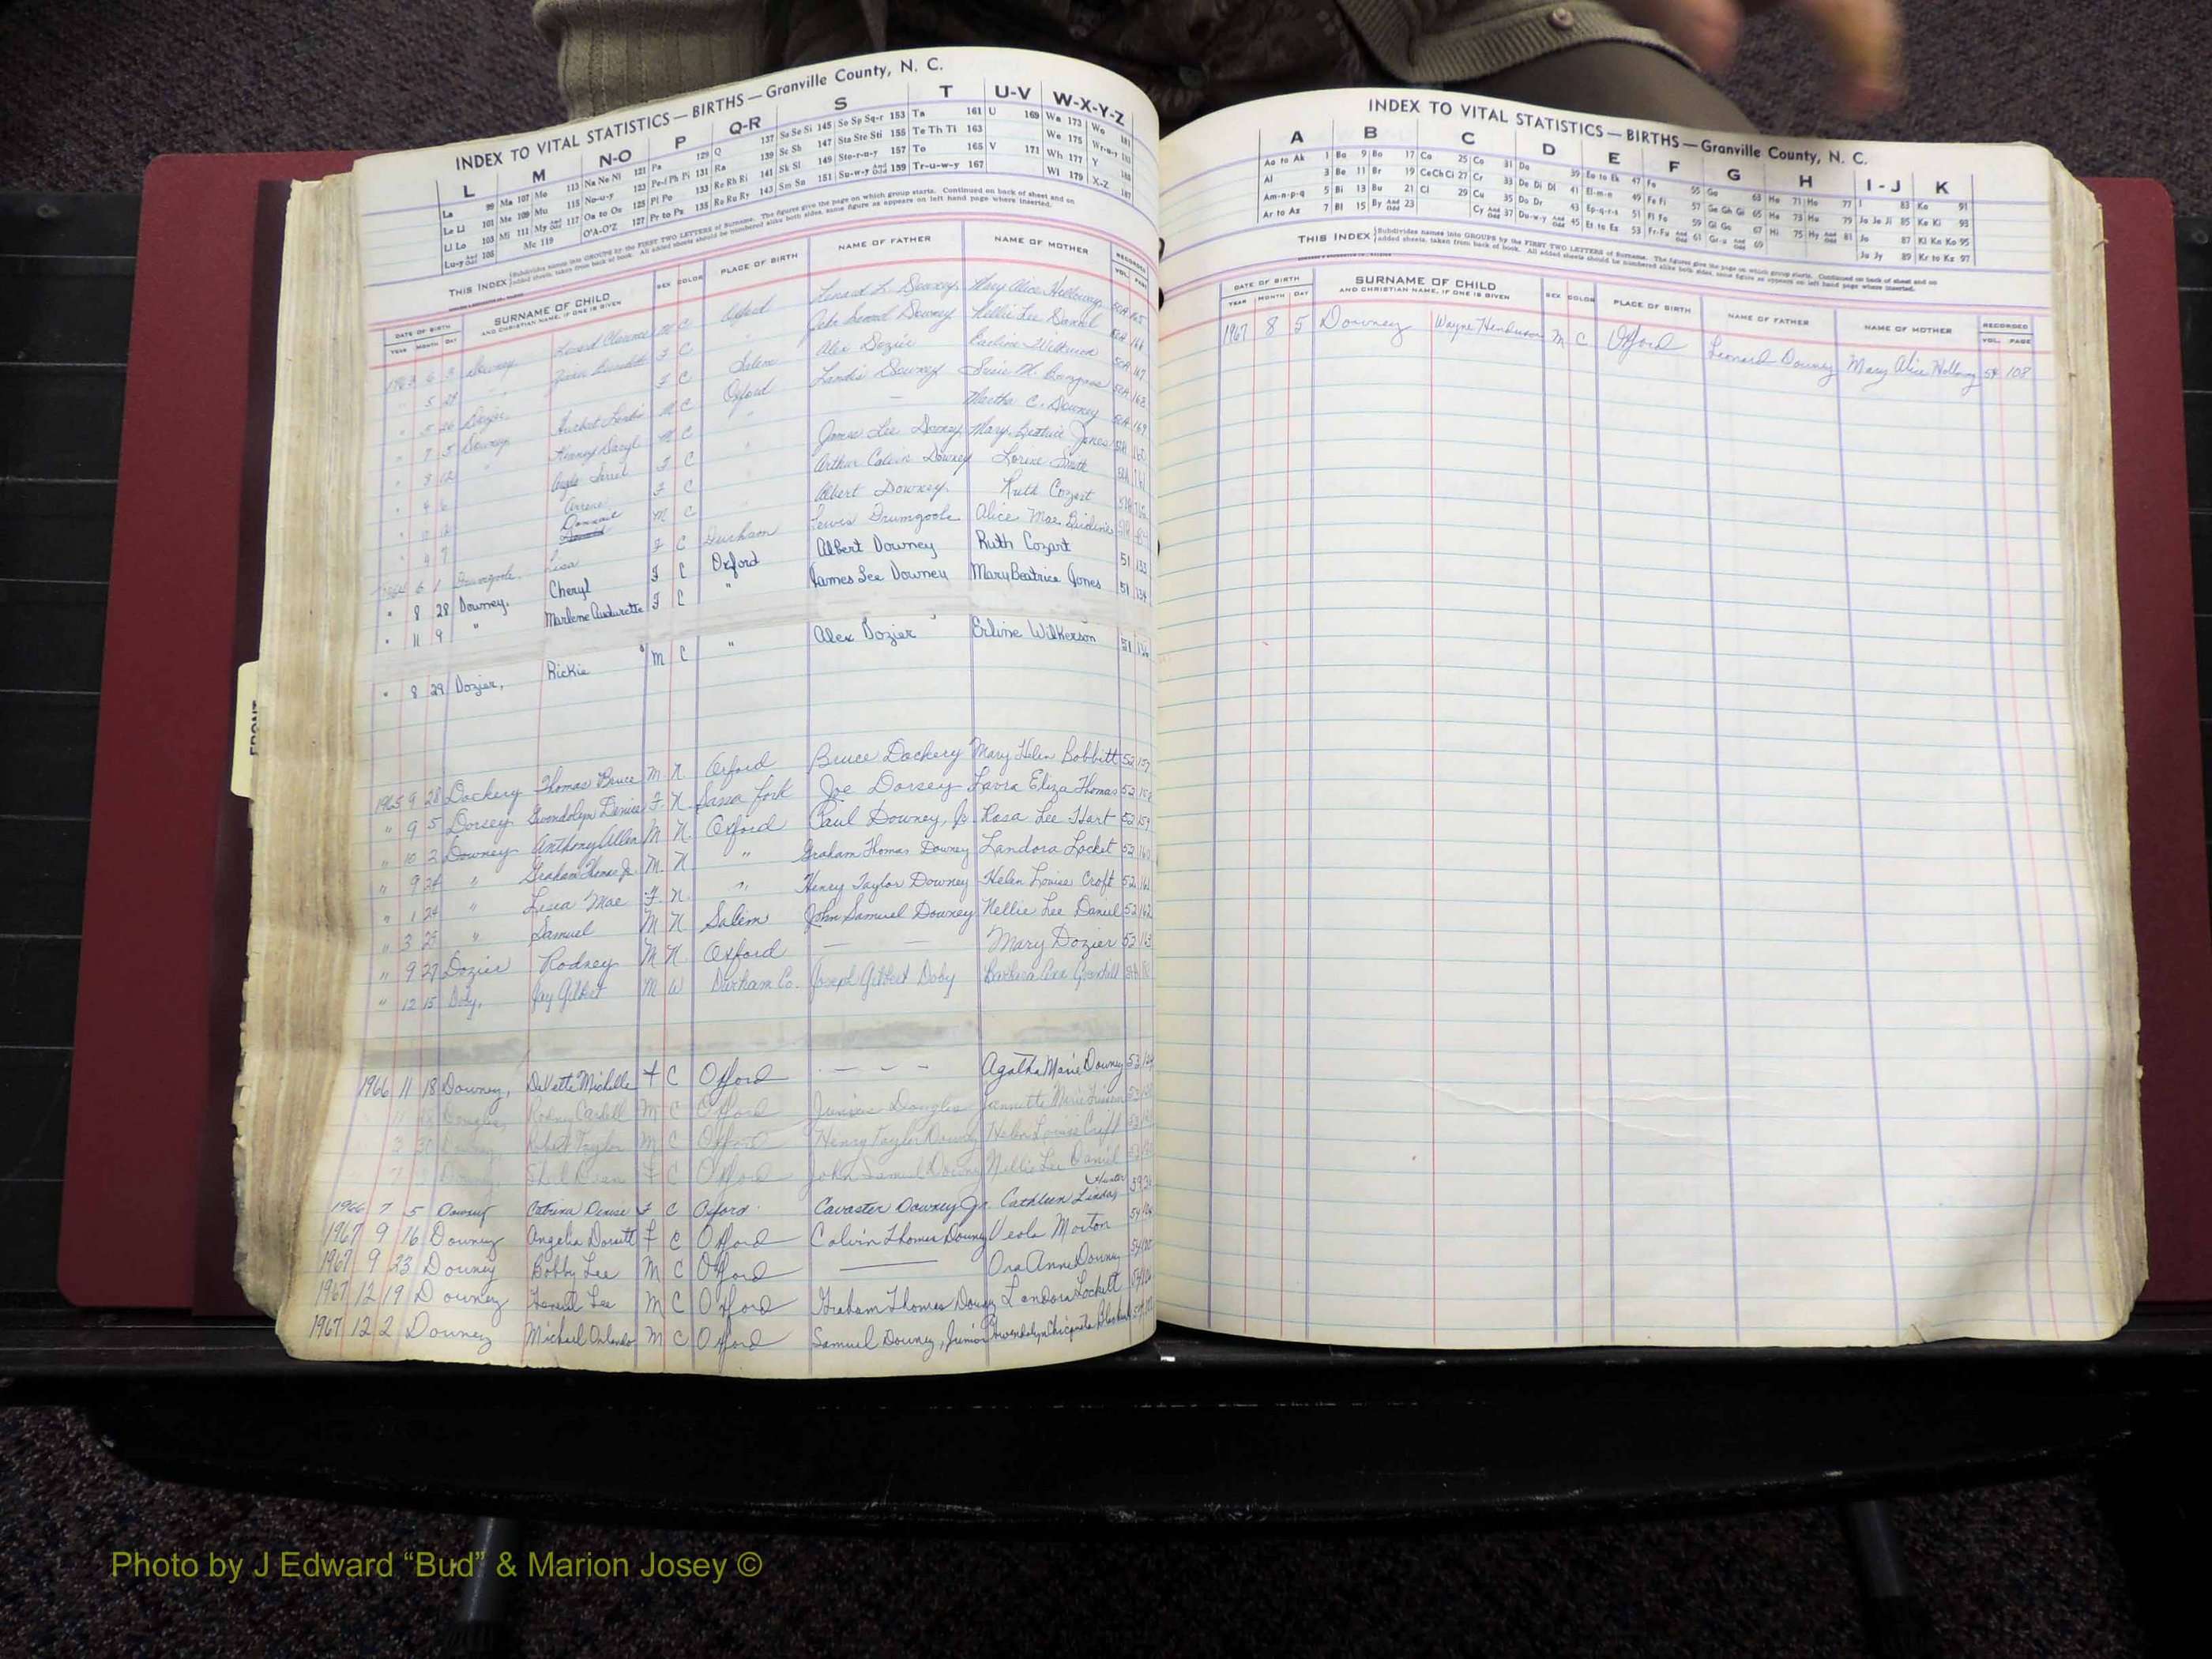 INDEX TO VITAL STATISTICS — BIRTHS — Granville County, N. C.
L M N-O P Q-R S T U-V W-X-Y-Z
La 99 Ma 107 Mo 113 Na Ne Ni 121 Pa 129 Q 137 Sa Se Si 145 So Sp Sq-r 153 Ta 161 U 169 Wa 173 Wo 181
Le Li 101 Me 109 Mu 115 No-u-y 123 Pe-f Ph Pi 131 Ra 139 Sc Sh 147 Sta Ste Sti 155 Te Th Ti 163 We 175 Wr-u-y 183
Ll Lo 103 Mi 111 My And Odd 117 Oa to Oz 125 Pl Po 133 Re Rh Ri 141 Sk Sl 149 Sto-r-u-y 157 To 165 V 171 Wh 177 Y 185
Lu-y And Odd 105 Mc 119 O'A-O'Z 127 Pr to Pz 135 Ro Ru Ry 143 Sm Sn 151 Su-w-y And Odd 159 Tr-u-w-y 167 Wi 179 X-Z 187
THIS INDEX Subdivides names into GROUPS by the FIRST TWO LETTERS of Surname. The figures give the page on which group starts. Continued on back of sheet and on
added sheets, taken from back of book. All added sheets should be numbered alike both sides, same figure as appears on left hand page where inserted.
DATE OF BIRTH SURNAME OF CHILD SEX COLOR PLACE OF BIRTH NAME OF FATHER NAME OF MOTHER RECORDED
YEAR MONTH DAY AND CHRISTIAN NAME, IF ONE IS GIVEN VOL. PAGE
1963 6 3 Downey Leonard Clarence M C Oxford Leonard L. Downey Mary Alice Holloway 50A 165
" 5 28 " F C " John Samuel Downey Nellie Lee Daniel 50A 166
" 5 26 Dozier F C Salem Alex Dozier Earline Wilkerson 50A 167
" 7 5 Downey Hurbert Landis M C Oxford Landis Downey Susie M. 50A 168
" 8 12 " Kenney Daryl M C " — Martha C. Downey 50A 169
" 4 6 F C " James Lee Downey Mary Beatrice Jones 160
F C Arthur Calvin Downey Lorine Smith 161
" 4 7 M C Albert Downey Ruth Cozart
1964 6 1 Drumgoole Lisa F C Durham Lewis Drumgoole Alice Mae
" 8 28 Downey. Cheryl F C Oxford Albert Downey Ruth Cozart 51 133
" 11 9 " Marlene Audurette F C " James Lee Downey Mary Beatrice Jones 51 134
" 8 29 Dozier, Rickie M C " Alex Dozier Erline Wilkerson 51 136
1965 9 28 Dockery Thomas Bruce M N Oxford Bruce Dockery Mary Helen Bobbitt 52 157
" 9 5 Dorsey Gwendolyn Denise F. N. Sassa fork Joe Dorsey Lavra Eliza Thomas 52 158
" 10 2 Downey Anthony Allen M N. Oxford Paul Downey, Jr Rosa Lee Hart 52 159
" 9 24 " Graham Thomas Jr. M. N. " Graham Thomas Downey Landora Locket 52 160
" 1 24 " Lisca Mae F. N. " Henry Taylor Downey Helen Louise Croft 52 161
" 3 25 " Samuel M N. Salem John Samuel Downey Nellie Lee Daniel 52 162
" 9 27 Dozier Rodney M N. Oxford — — Mary Dozier 52 163
" 12 15 Doby, Jay Gilbert M W Durham Co. Joseph Gilbert Doby Barbara Ann
1966 11 18 Downey, DeVette Michelle F C Oxford — — — Agatha Marie Downey 53
Douglas, Rodney Cardell M C Oxford Junius Douglas Jannette Marie 53
3 30 Downey, Robert Taylor M C Oxford Henry Taylor Downey Helen Louise Croft 53
7 Downey, F C Oxford John Samuel Downey Nellie Lee Daniel 53
1966 7 5 Downey Catrina Denise F C Oxford. Cavaster Downey Jr. Cathleen Lindas Hunter
1967 9 16 Downey Angelia Dorsett F C Oxford Calvin Thomas Downey Veola Morton 54
1967 9 23 Downey Bobby Lee M C Oxford — Ora Anne Downey 54
1967 12 19 Downey Lee M C Oxford Graham Thomas Downey Landora Lockett 54
1967 12 2 Downey Michael Orlando M C Oxford Samuel Downey, Junior Gwendolyn Chiquita
INDEX TO VITAL STATISTICS — BIRTHS — Granville County, N. C.
A B C D E F G H I-J K
Aa to Ak 1 Ba 9 Bo 17 Ca 25 Co 31 Da 39 Ea to Ek 47 Fa 55 Ga 63 Ha 71 Ho 77 I 83 Ka 91
Al 3 Be 11 Br 19 Ce Ch Ci 27 Cr 33 De Di Dl 41 El-m-n 49 Fe Fi 57 Ge Gh Gi 65 He 73 Hu 79 Ja Je Ji 85 Ke Ki 93
Am-n-p-q 5 Bi 13 Bu 21 Cl 29 Cu 35 Do Dr 43 Ep-q-r-s 51 Fl Fo 59 Gl Go 67 Hi 75 Hy And Odd 81 Jo 87 Kl Kn Ko 95
Ar to Az 7 Bl 15 By And Odd 23 Cy And Odd 37 Du-w-y And Odd 45 Et to Ez 53 Fr-Fu And Odd 61 Gr-u And Odd 69 Ju Jy 89 Kr to Kz 97
THIS INDEX Subdivides names into GROUPS by the FIRST TWO LETTERS of Surname. The figures give the page on which group starts. Continued on back of sheet and on
added sheets, taken from back of book. All added sheets should be numbered alike both sides, same figure as appears on left hand page where inserted.
DATE OF BIRTH SURNAME OF CHILD SEX COLOR PLACE OF BIRTH NAME OF FATHER NAME OF MOTHER RECORDED
YEAR MONTH DAY AND CHRISTIAN NAME, IF ONE IS GIVEN VOL. PAGE
1967 8 5 Downey Wayne Henderson M C Oxford Leonard Downey Mary Alice Holloway 54 108
FRONT
Photo by J Edward “Bud” & Marion Josey ©